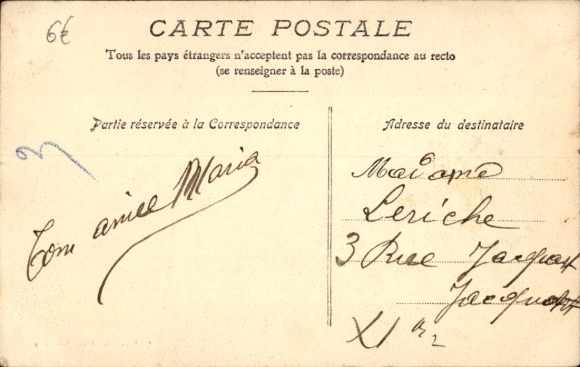 6€
CARTE POSTALE
Tous les pays étrangers n'acceptent pas la correspondance au recto
(se renseigner à la poste)
Partie réservée à la Correspondance
Adresse du destinataire
Ton amie Maria
Madame
Leriche
3 Rue
XI